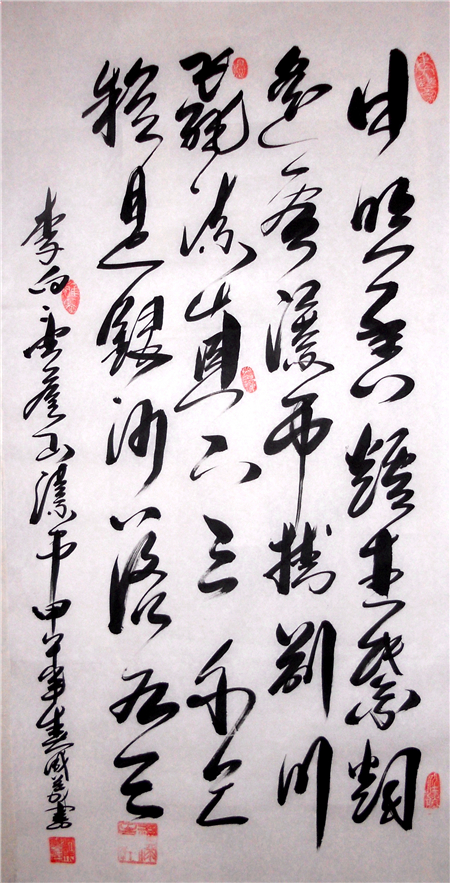 日照香爐生紫烟
遥看瀑布掛前川
飛流直下三千尺
疑是銀河落九天
李白望廬山瀑布甲午年書